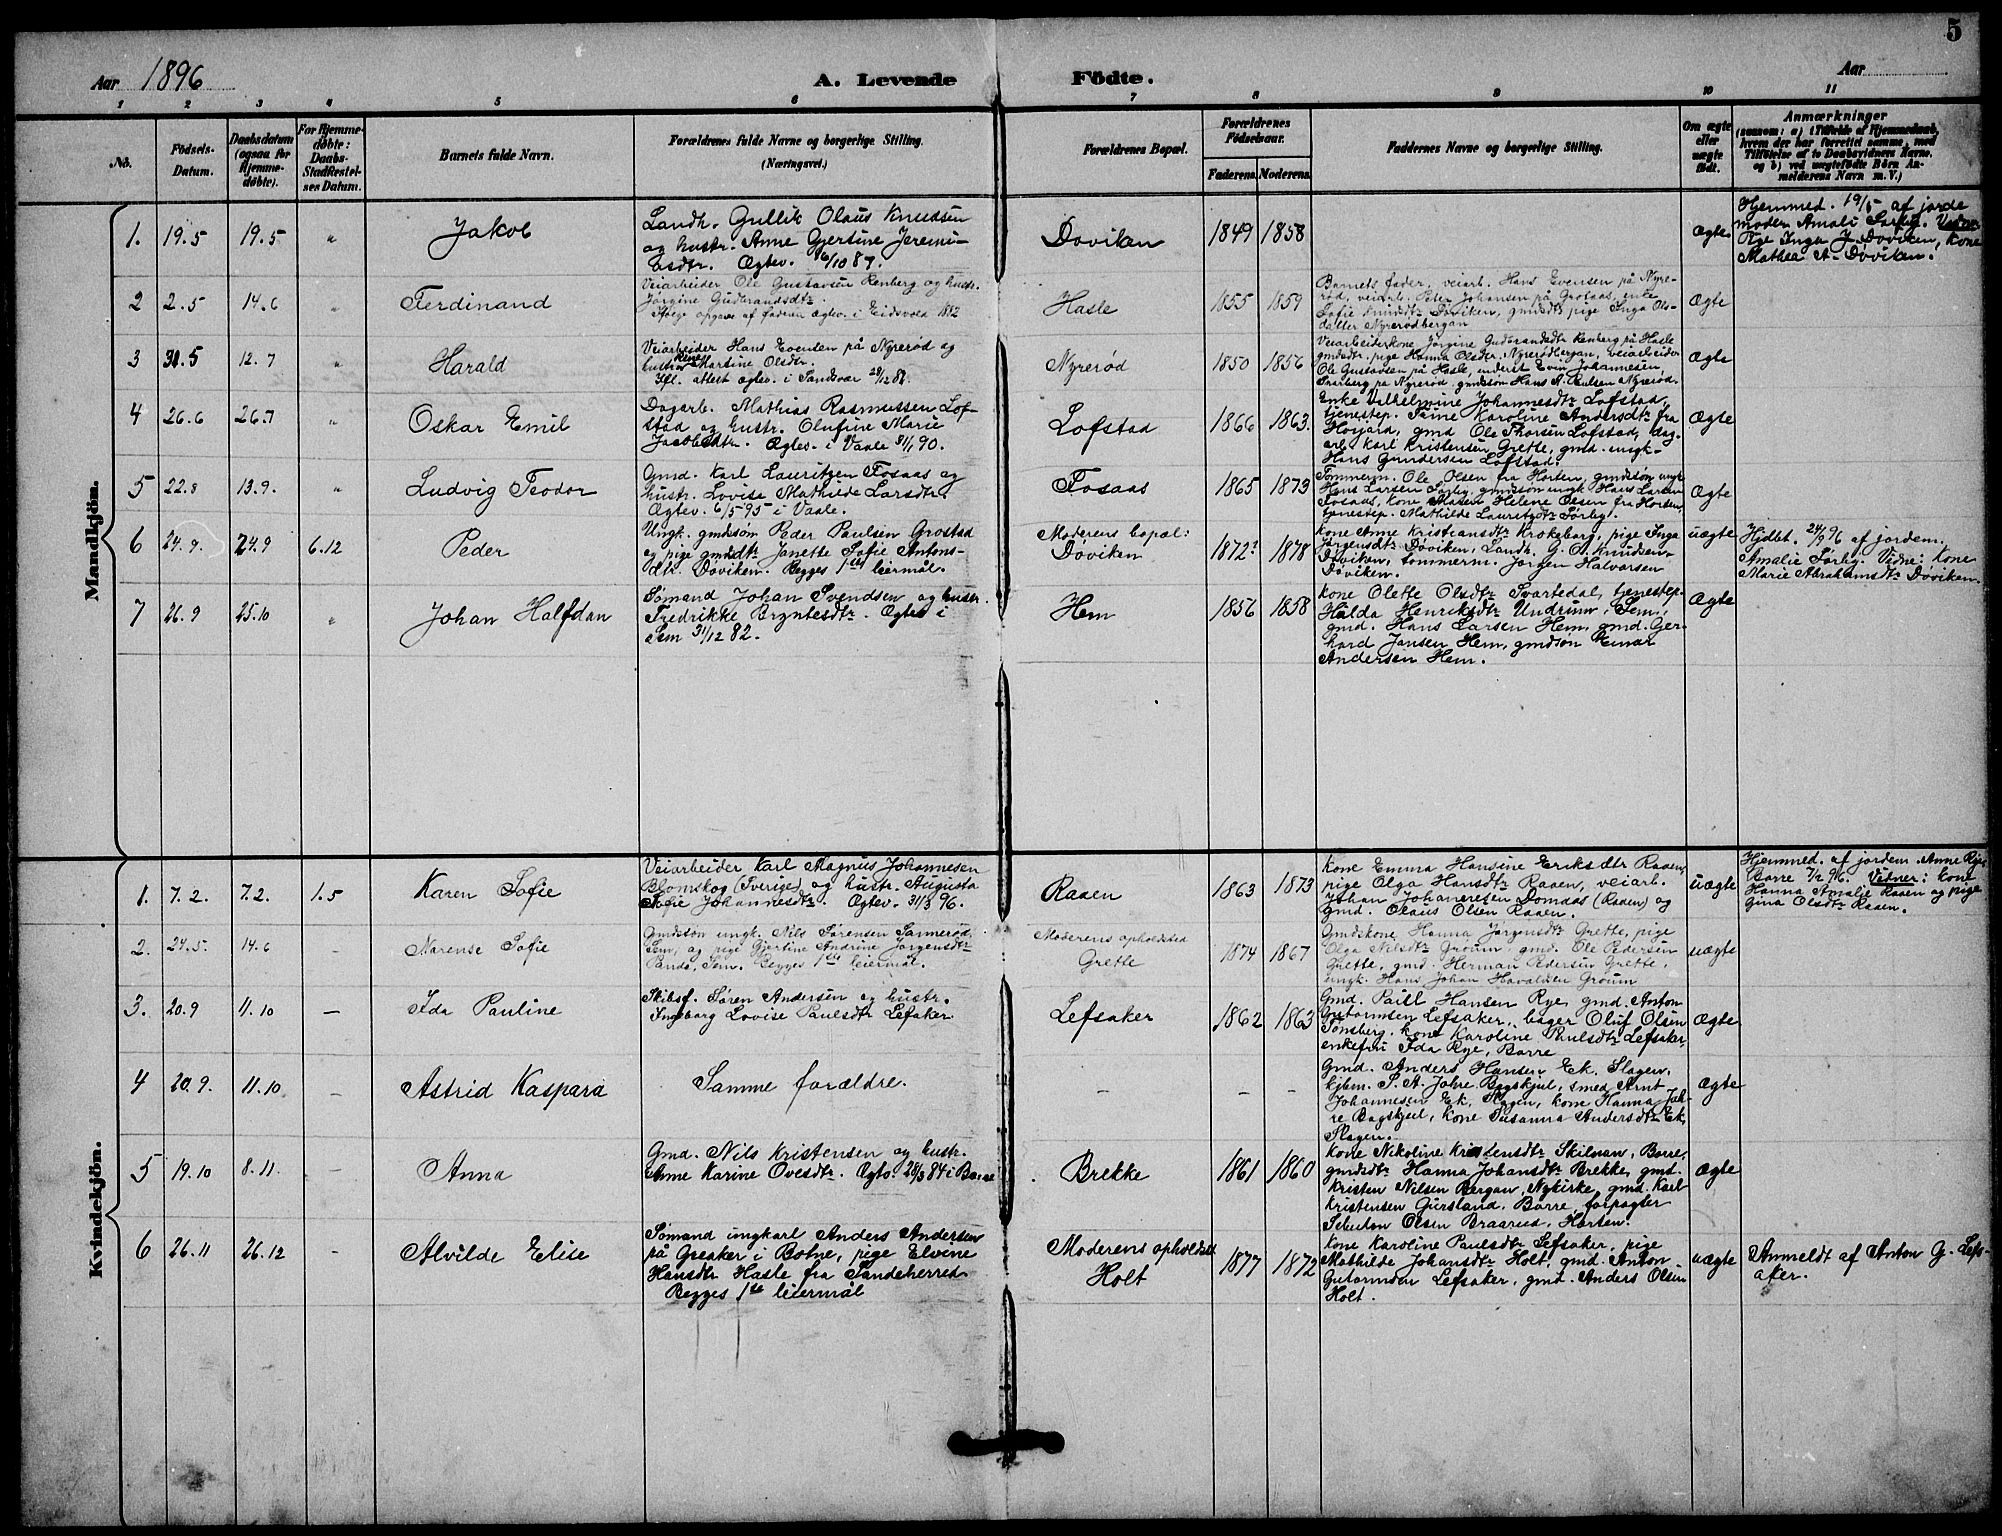 5
Aar 1896
A. Levende Födte.
Aar
1 2 3 4 5 6 7 8 9 10 11
No.
Födsels-Datum.
Daabsdatum (ogsaa for Hjemme-döbte).
For Hjemme-döbte: Daabs-Stadfæstel-ses Datum.
Barnets fulde Navn.
Forældrenes fulde Navne og borgerlige Stilling.
(Næringsvei.)
Forældrenes Bopæl.
Forældrenes Födselsaar.
Faderens. Moderens.
Faddernes Navne og borgerlige Stilling.
Om ægte eller uægte födt.
Anmærkninger
(saasom: a) i Tilfælde af Hjemmedaab, hvem der har forrettet samme, med Tilföielse af to Daabsvidners Navne, og b) ved uægtefödte Börn Anmelderens Navn m. V.)
Mandkjön.
1. 19.5 19.5 " Jakob
Landh. Gullik Olaus Knudsen
og hustr. Anne Gjertine Jeremi-
Esdtr. Ægtev. 16/10 87.
Døviken 1849 1858
Ægte
Hjemmed. 19/5 af jorde
moder Amali Sørby. Vidner
Pige Inga J. Døviken, kone
Mathea A. Døviken.
2 2.5 14.6 " Ferdinand
Veiarbeider Ole Gustavsen Renberg og hustr.
Jørgine Gudbrandsdtr.
Ifølge opgave af faderen ægtev. i Eidsvold 1882
Hasle 1855 1859
Barnets fader, veiarb. Hans Evensen på Nyre-
rød, veiarb. Peter Johansen på Grosaas, enke
Sofie Knudsdtr Døviken, gmdsdtr pige Inga Ols-
datter Nyrerødbergan
Ægte
3 30.5 12.7 " Harald
Veiarbeider Hans Evensen på Nyrerød og
hustr. Rene Martine Olsdtr.
Ifl. attest ægtev. i Sandsvær 28/12 82.
Nyrerød 1850 1856
Veiarbeiderkone Jørgine Gudbrandsdtr Renberg på Hasle
gmdsdtr. pige Hanna Olsdtr. Nyrerødbergan, veiarbeider
Ole Gustavsen på Hasle, Even Johannesen,
på Nyrerød. gmdsøn Hans A. Paulsen Nyrerød.
Ægte
4 26.6 26.7 " Oskar Emil
Dagarb. Mathias Rasmussen Lof-
stad og hustr. Olufine Marie
Jacobsdtr. Ægtev. i Vaale 31/1 90.
Lofstad 1866 1863.
Enke Vilhelmine Johannesdtr Lofstad,
tjenestep. Trine Karoline Andersdtr fra
Høijord, gmd Ole Thorsen Lofstad, dag-
arb Karl Kristensen Grette, gmd. ungk-
Hans Gundersen Lofstad.
Ægte
5 22.8 13.9. " Ludvig Teodor
Gmd. Karl Lauritzen Fosaas og
hustr. Lovise Mathilde Larsdtr.
Ægtev. 6/5 95 i Vaale.
Fosaas 1865 1873
Tømmerm. Ole Olsen fra Horten, gmdsøn ungk
Hans Larsen Sørby, gmdsøn ungk Hans Larsen
Fosaas, kone Maren Helene Olsen fra Horten,
tjenestep. Mathilde Lauritzdtr Sørby.
Ægte
6 24.9. 24.9 6.12 Peder
Ungk. gmdsøn Peder Paulsen Grostad
og pige gmdsdtr. Janette Sofie Antons-
dtr. Døviken. Begges 1ste leiermål.
Moderens bopæl:
Døviken 1872? 1878
Kone Anne Kristiansdtr Krokeborg, pige Inga
Jørgensdtr Døviken, Landh. G. O. Knudsen
Døviken, tømmerm. Jørgen Halvorsen
Døviken.
uægte
Hjdbt. 24/9 96 af jordem.
Amalie Sørby. Vidne: kone
Marie Abrahamsdtr Døviken.
7 26.9 25.10 " Johan Halfdan
Sømand Johan Svendsen og hustr.
Fredrikke Bryntesdtr. Ægtev i
Sem 31/12 82.
Hem 1856 1858
Kone Olette Olsdtr Svartedal, tjenestep.
Hilda Henriksdtr Undrum, Sem,
gmd. Hans Larsen Hem, gmd. Ger-
hard Jansen Hem, gmdsøn Einar
Andersen Hem.
Ægte
Kvindekjön.
1. 7.2. 7.2. 1.5 Karen Sofie
Veiarbeider Karl Magnus Johannesen
Blomskog (Sverige) og hustr. Augusta
Sofie Johannesdtr. Ægtev. 31/3 96.
Raaen 1863 1873
Kone Emma Hansine Eriksdtr Raaen,
pige Olga Hansdtr Raaen, veiarb.
Johan Johannesen Domdas (Raaen) og
Gmd. Olaus Olsen Raaen.
uægte
Hjemmed. af jordem. Anne Rye
Borre 7/2 96. Vidner: kone
Hanna Amalie Raaen og pige
Gina Olsdtr Raaen.
2. 24.5. 14.6 - Marense Sofie
Gmdsøn ungk. Nils Sørensen Sannerød,
Sem, og pige Gjertine Andrine Jørgensdtr
Sande, Sem. Begges 1ste leiermål.
Moderens opholdsted
Grette 1874 1867
Gmdskone Hanna Jørgensdtr Grette, pige
Olga Nilsdtr Groum, gmd. Ole Pedersen
Grette, gmd. Herman Pedersen Grette,
ungk. Hans Johan Havaldsen Groum
uægte
3. 20.9 11.10 - Ida Pauline
Skibsf. Søren Andersen og hustr.
Ingeborg Lovise Paulsdtr Lefsaker
Lefsaker 1862 1863
Gmd. Paul Hansen Rye, gmd. Anton
Guttormsen Lefsaker, bager Oluf Olsen
Tønsberg, kone Karoline Paulsdtr Lefsaker,
enkefru Ida Rye, Borre
Ægte
4 20.9. 11.10 - Astrid Kaspara
Samme forældre.
- - -
Gmd. Anders Hansen Ek, Slagen,
kjbm. S. A. Jahre Bogskjul, smed Arnt
Johannesen Ek, Slagen, kone Hanna Jah-
re Bogskjul, kone Susanna Andersdtr Ek,
Slagen.
Ægte
5 19.10 8.11. - Anna
Gmd. Nils Kristensen og hustr.
Anne Karine Ovesdtr. Ægtv. 28/3 84 i Borre
Brekke 1861 1860
Kone Nikoline Kristensdtr Skilnan, Borre,
gmdsdtr Hanna Johansdtr Brekke, gmd.
Kristen Nilsen Bergan, Nykirke, gmd. Karl
Kristensen Gursland, Borre, forpagter
Olsen Braarud, Horten.
ægte
6 26.11 26.12 - Alvilde Elise
Sømand ungkarl Anders Andersen
på Greaker i Botne, pige Elvine
Hansdtr Hasle fra Sandeherred
Begges 1ste leiermål
Moderens opholdsst
Holt 1877 1872
Kone Karoline Paulsdtr Lefsaker, pige
Mathilde Johansdtr Holt, gmd. Anton
Gutormsen Lefsaker, gmd. Anders Olsen
Holt.
uægte
Anmeldt af Anton G. Lefs-
aker.